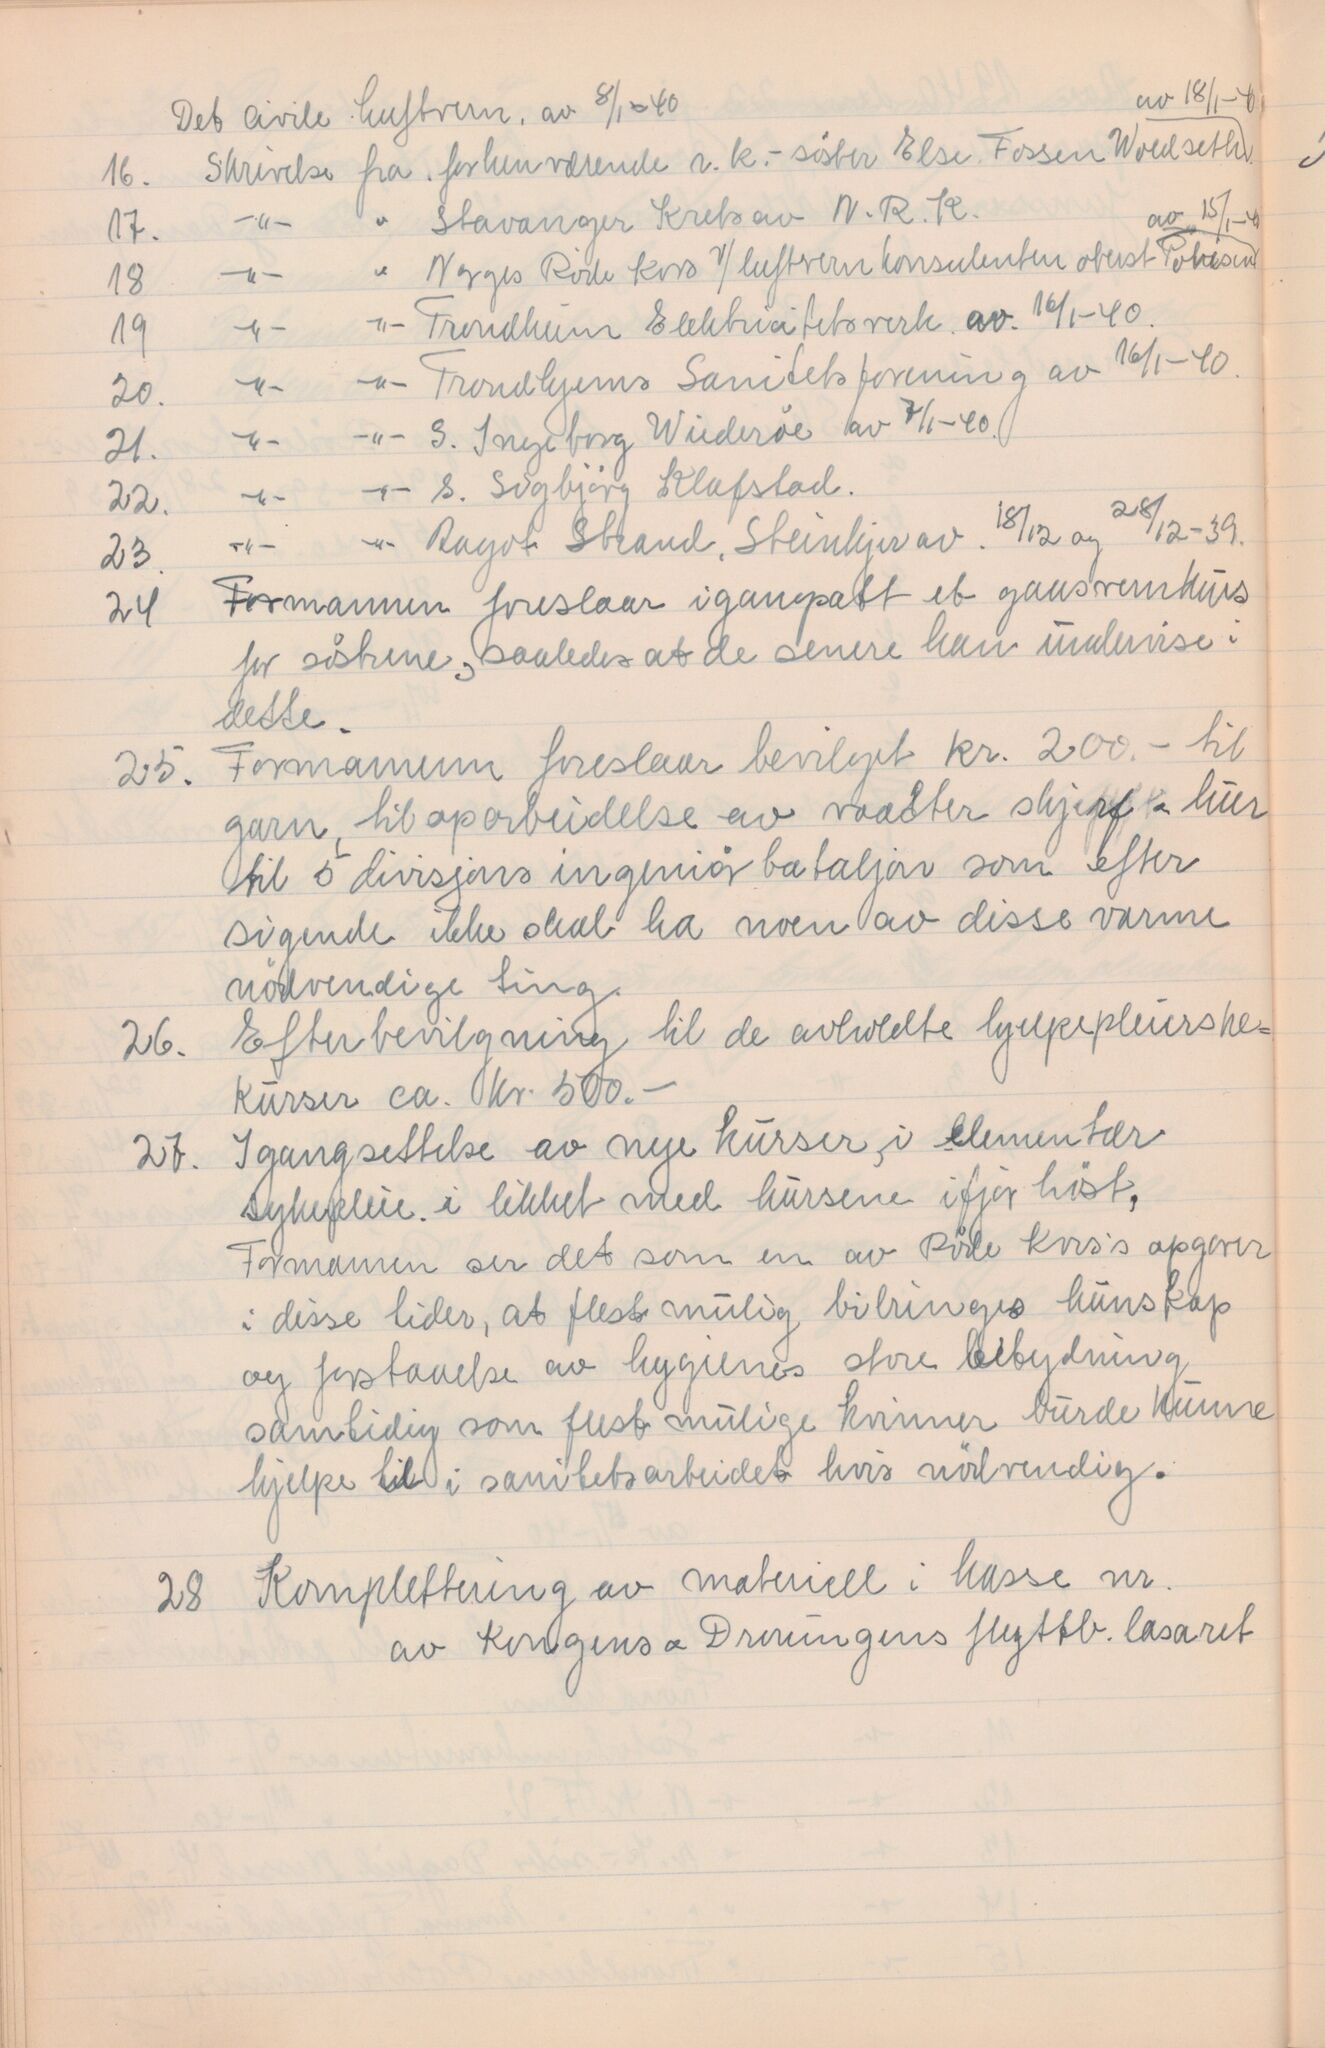 Det civile luftvern, av 8/1-40
av 18/1-40
16. Skrivelse fra forhenværende r.k.-söster Else Fossen Woldseth.
17. -"- " Stavanger Krets av N.R.K.
av 15/1-40
18 -"- " Norges Röde Kors v/ luftvernkonsulenten oberst
19 -"- -"- Trondheim Elektricitetsverk av. 16/1-40.
20. -"- -"- Trondhjems Sanitetsforening av 16/1-40.
21. -"- -"- S. Ingeborg Wideröe av 7/1-40.
22. -"- -"- S. Sigbjörg Klafstad.
23. -"- -"- Ragot Strand, Steinkjer av. 18/12 og 28/12-39.
24 Formannen foreslaar igangsatt et gassvernkurs
for söstrene, saaledes at de senere kan undervise i
dette.
25. Formannen foreslaar bevilget kr. 200.- til
garn, til oparbeidelse av vaatter skjerf & huer
til 5 divisjons ingeniör bataljon som efter
sigende ikke skal ha noen av disse varme
nödvendige ting.
26. Efterbevilgning til de avholdte hjelpepleierske-
kurser ca. kr. 500.-
27. Igangsettelse av nye kurser, i elementær
sykepleie. i likhet med kursene ifjor höst,
Formannen ser det som en av Röde Kors's opgaver
i disse tider, at flest mulig bibringes kunskap
og forstaaelse av hygienes store betydning
samtidig som flest mulige kvinner burde kunne
hjelpe til i sanitetsarbeidet hvis nödvendig.
28 Komplettering av materiell i kasse nr.
av Kongens & Dronningens flyttb. lasaret